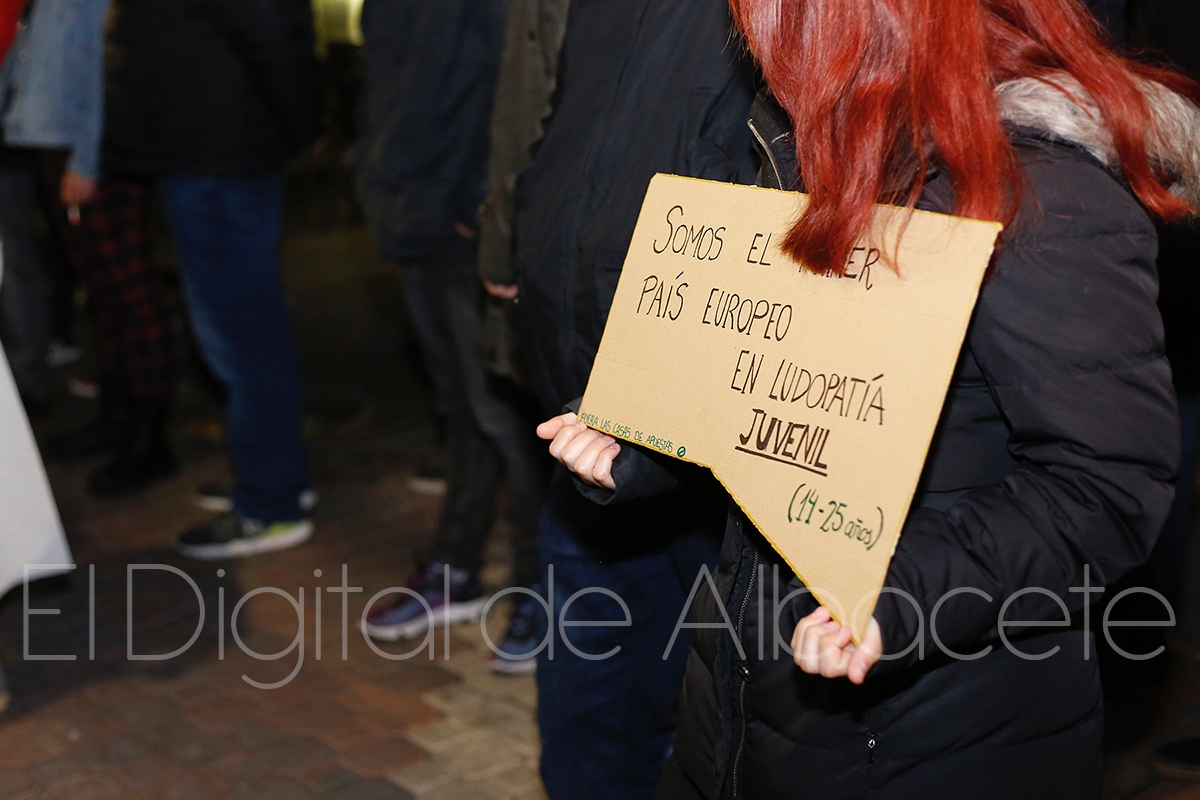 SOMOS EL
PAÍS EUROPEO
EN LUDOPATÍA
JUVENIL
(14-25 años)
FUERA LAS CASAS DE APUESTAS
El Digital de Albacete